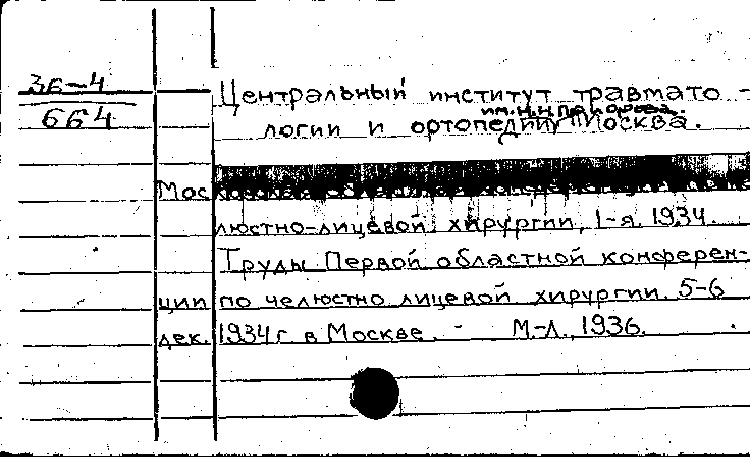 36-4
664
Центральный институт травмато-
им. Н.Н. Приорова.
логии и ортопедии Москва.
Мос
люстно-лицевой хирургии, 1-я. 1934.
Труды Первой областной конферен-
ции по челюстно лицевой хирургии. 5-6
дек. 1934 г. в Москве. - М.-Л., 1936.